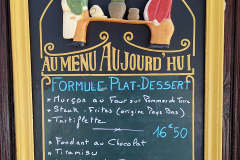 AU MENU AUJOURD'HUI,
FORMULE PLAT-DESSERT
* Murçon au Four sur Pommes de Terre
* Steak. Frites (origine Pays Bas)
* Tartiflette
16€50
* Fondant au Chocolat
* Tiramisu